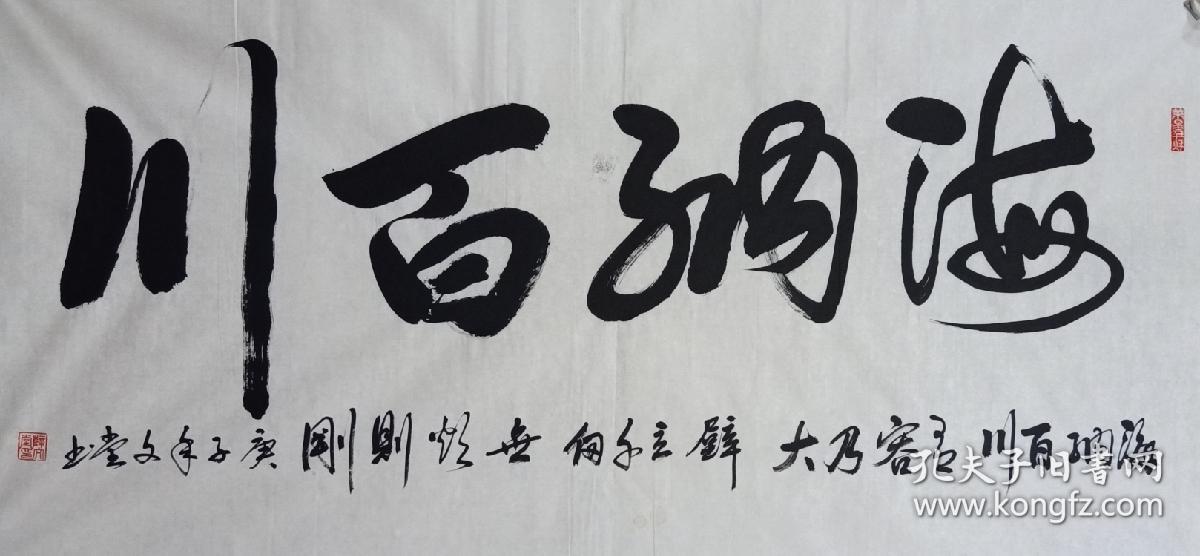 海納百川
海納百川有容乃大壁立千仞無欲則剛庚子年文堂书
孔夫子旧书网
www.kongfz.com